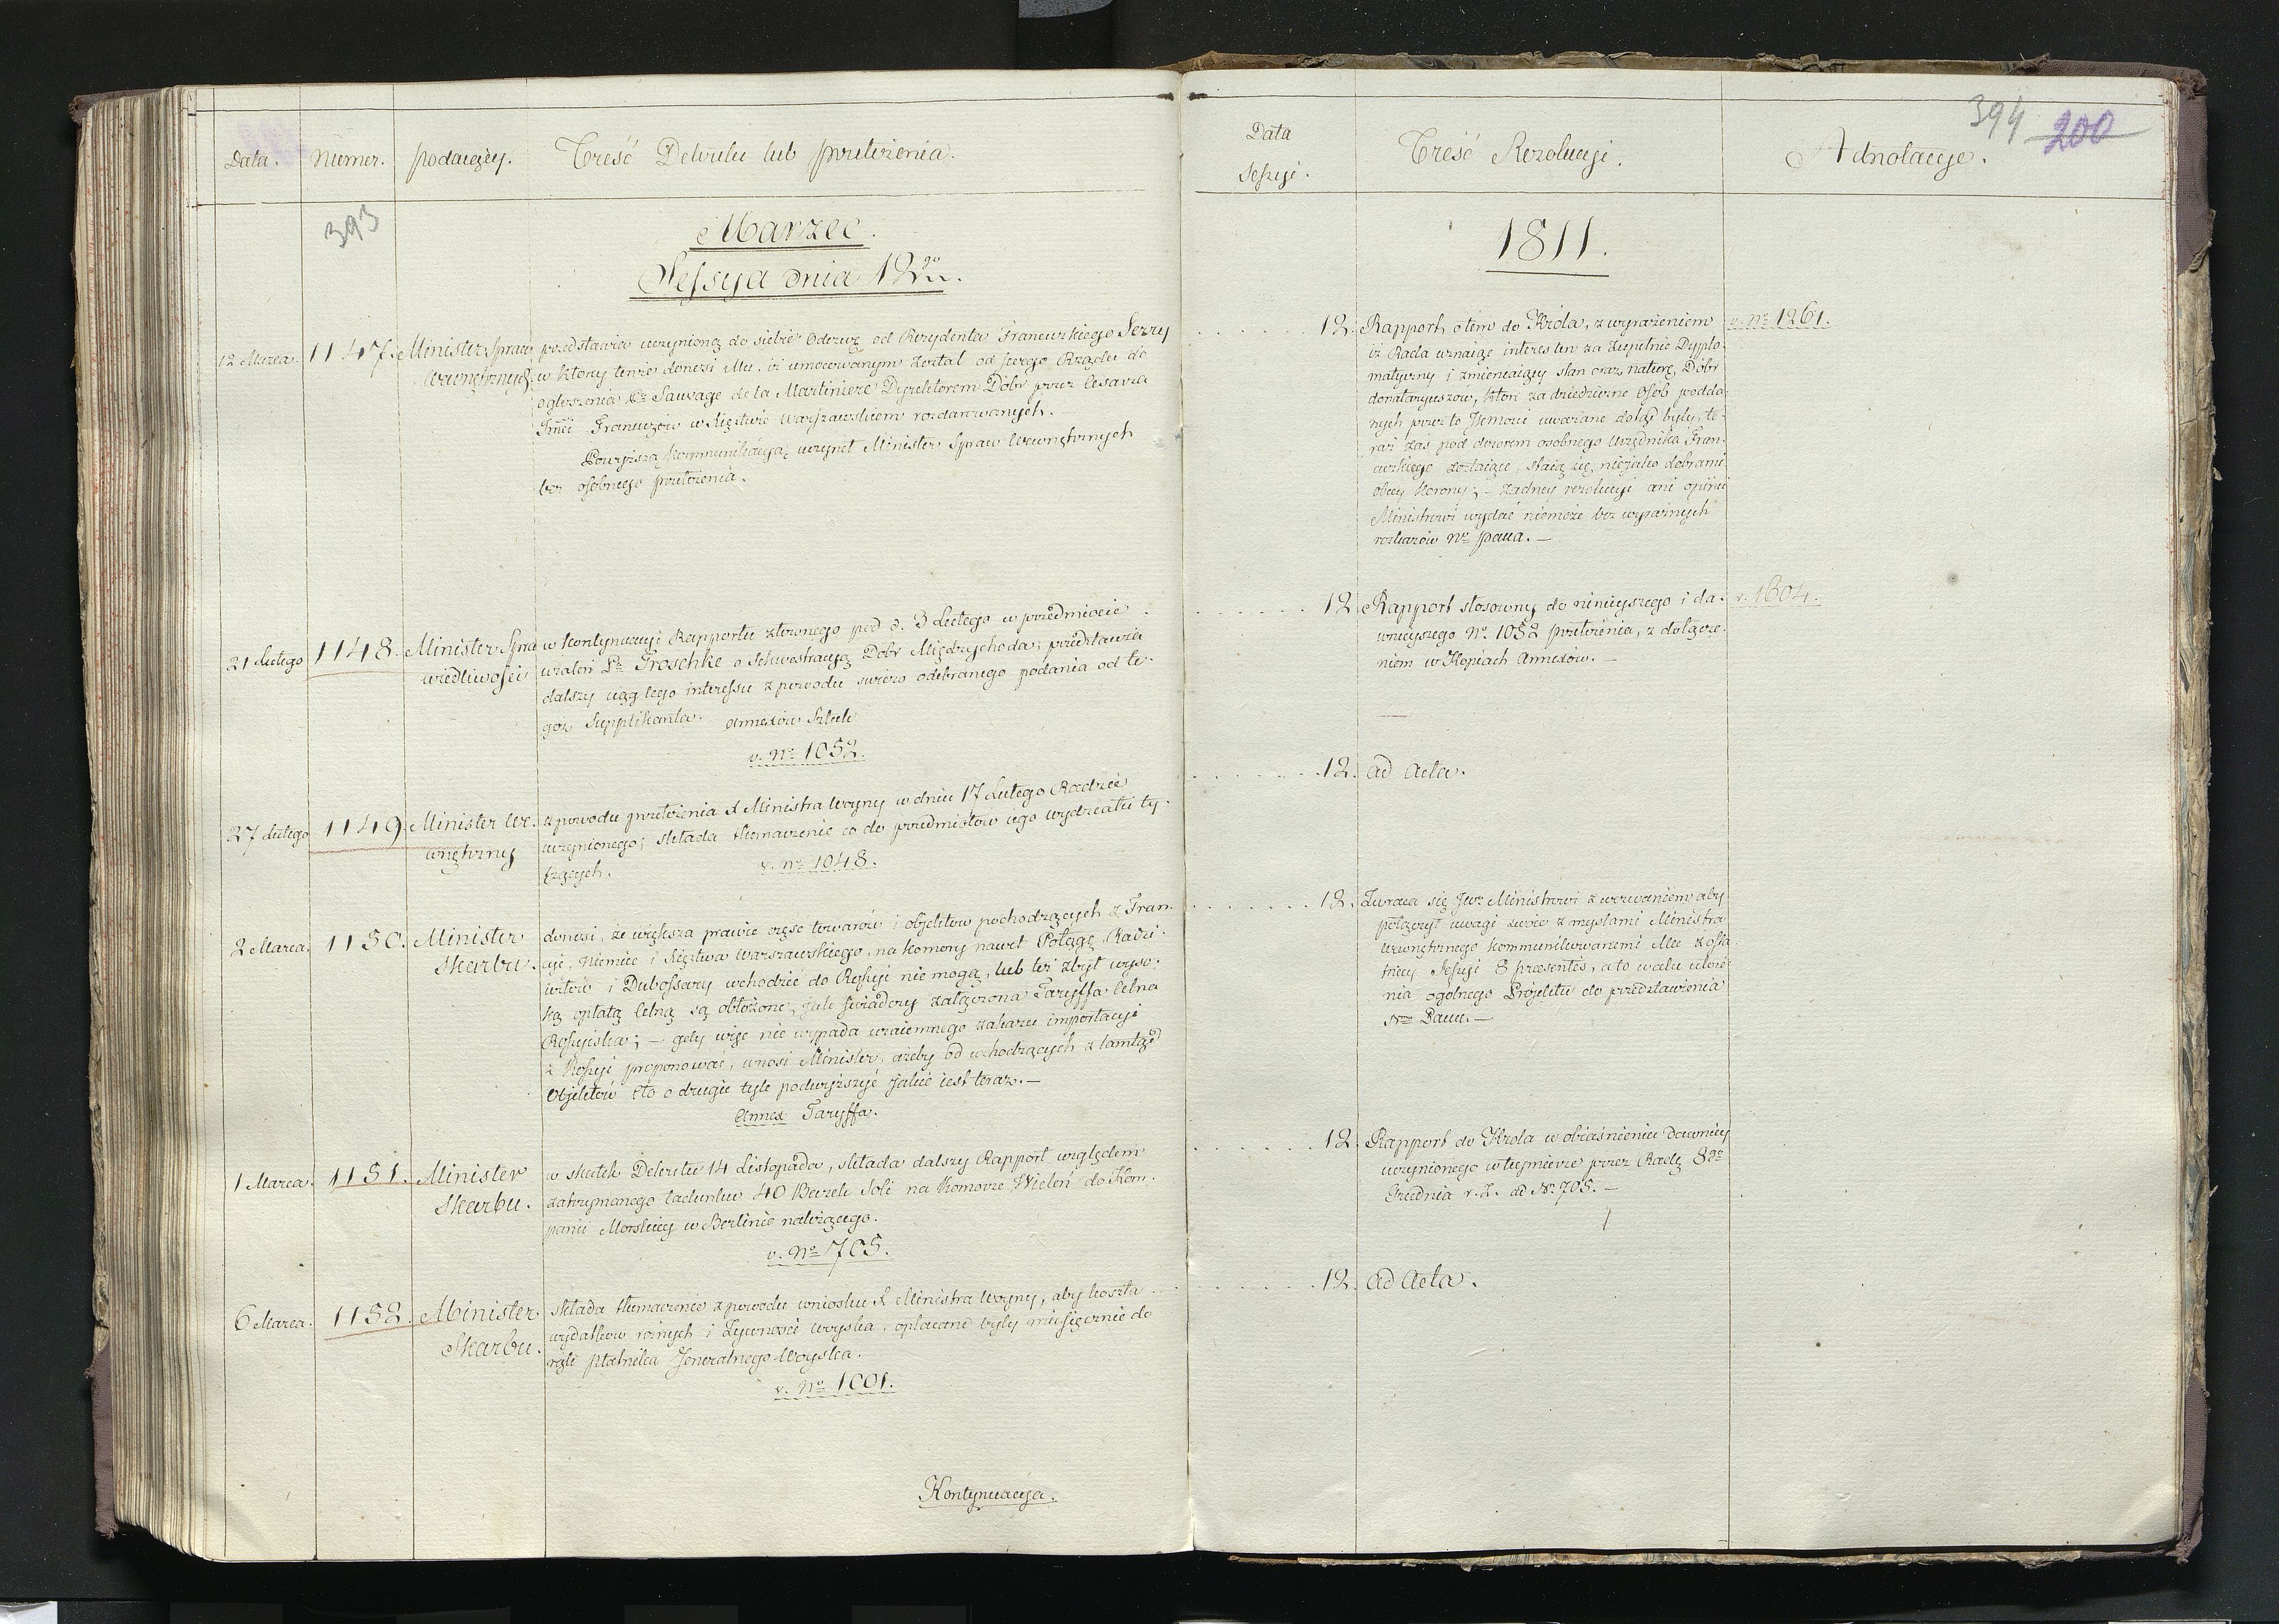 Data. Numer. podaiący. Treść Dekretu lub przełożenia.
393
Marzec.
Sessya dnia 12go.
12 Marca. 1147. Minister Spraw Wewnętrznych
przedstawia uczynioną do siebie Odezwę od Rezydenta Francuzkiego Serry
w ktory tenże donosi Mu, iż umocowanym został od swego Rządu do
ogłoszenia Sauvage de la Martiniere Dyrektorem Dóbr przez Cesarza
Jmci Francuzów w Xięstwie Warszawskiem rozdarowanych. —
Powyższą kommunikacyą uczynił Minister Spraw Wewnętrznych
bez osobnego przełożenia.
21 Lutego 1148. Minister Sprawiedliwości
w kontynuacyi Rapportu złożonego pod d. 3 Lutego w przedmiocie
użaleń Troschke o Sekwestracyą Dóbr Międzychoda; przedstawia
dalszy ciąg tego interessu z powodu swieżo odebranego podania od te-
goż Supplikanta. Annexów Sztuk
v. No 1052.
27 Lutego 1149. Minister Wewnętrzny
z powodu przełożenia X Ministra Woyny w dniu 17 Lutego Radzie
uczynionego; składa tłumaczenie co do przedmiotów iego wydziału ty-
czących.
v. No 1048.
2 Marca. 1150. Minister Skarbu.
donosi, że większa prawie częsc towarów i objektow pochodzących z Fran-
cyi, Niemiec i Xięztwa Warszawskiego, na komory nawet Połągę, Radzi-
wiłów i Dubossary wchodzić do Rossyi nie mogą, lub też zbyt wyso-
ką opłatą celną są obłożone, Jak swiadczy załączona Taryffa Celna
Rossyiska; — gdy więc nie wypada wzaiemnego zakazu importacyi
z Rossyi proponować, wnosi Minister, ażeby od wchodzących z tamtąd
Objektów cło o drugie tyle podwyższyć jakie iest teraz. —
Annex Taryffa.
1 Marca. 1151. Minister Skarbu.
w skutek Dekretu 14 Listopada, składa dalszy Rapport względem
zatrzymanego ładunku 40 Beczek Soli na Komorze Wieleń do Kom-
panii Morskiey w Berlinie należącego.
v. No 705.
6 Marca. 1152. Minister Skarbu.
składa tłumaczenie z powodu wniosku X Ministra Woyny, aby koszta
wydatków roźnych i Żywnosci woyska, opłacane były miesięcznie do
rąk płatnika Jeneralnego Woyska.
v. No 1001.
Kontynuacya.
Data Sessyi. Treść Rezolucyi. Adnotacye.
394 200
1811.
12. Rapport o tém do Króla, z wyrażeniem v. No 1261.
iż Rada uznaiąc interes ten za zupełnie Dyplo-
matyczny i zmieniaiący stan oraz naturę Dóbr
donataryuszów, które za dziedziczne Osób podda-
nych przez to Jemości uważane dotąd były, te-
raz zaś pod dozorem osobnego Urzędnika Fran-
cuzkiego zostaiąc, staią się nieiako dobrami
obcey Korony; — żadney rezolucyi ani opinii
Ministrowi wydać niemoże bez wyraźnych
rozkazów No pana. —
12. Rapport stosowny do ninieyszego i da- v. 1604.
wnieyszego No 1052 przełożenia, z dołącze-
niem w Kopiach Annexów. —
12. ad Acta.
12. Zwraca się Jwo Ministrowi z wezwaniem aby
połączył uwagi swoie z mysłami Ministra
Wewnętrznego kommunikowanemi Mu z osta-
tniey Sessyi 8 praesentis, a to w celu ułoże-
nia ogólnego Projektu do przedstawienia
No Panu. —
12. Rapport do Króla w obiaśnieniu dawniey
uczynionego w teymierze przez Radę 8go
Grudnia r. z. ad No 705. —
12. ad Acta.